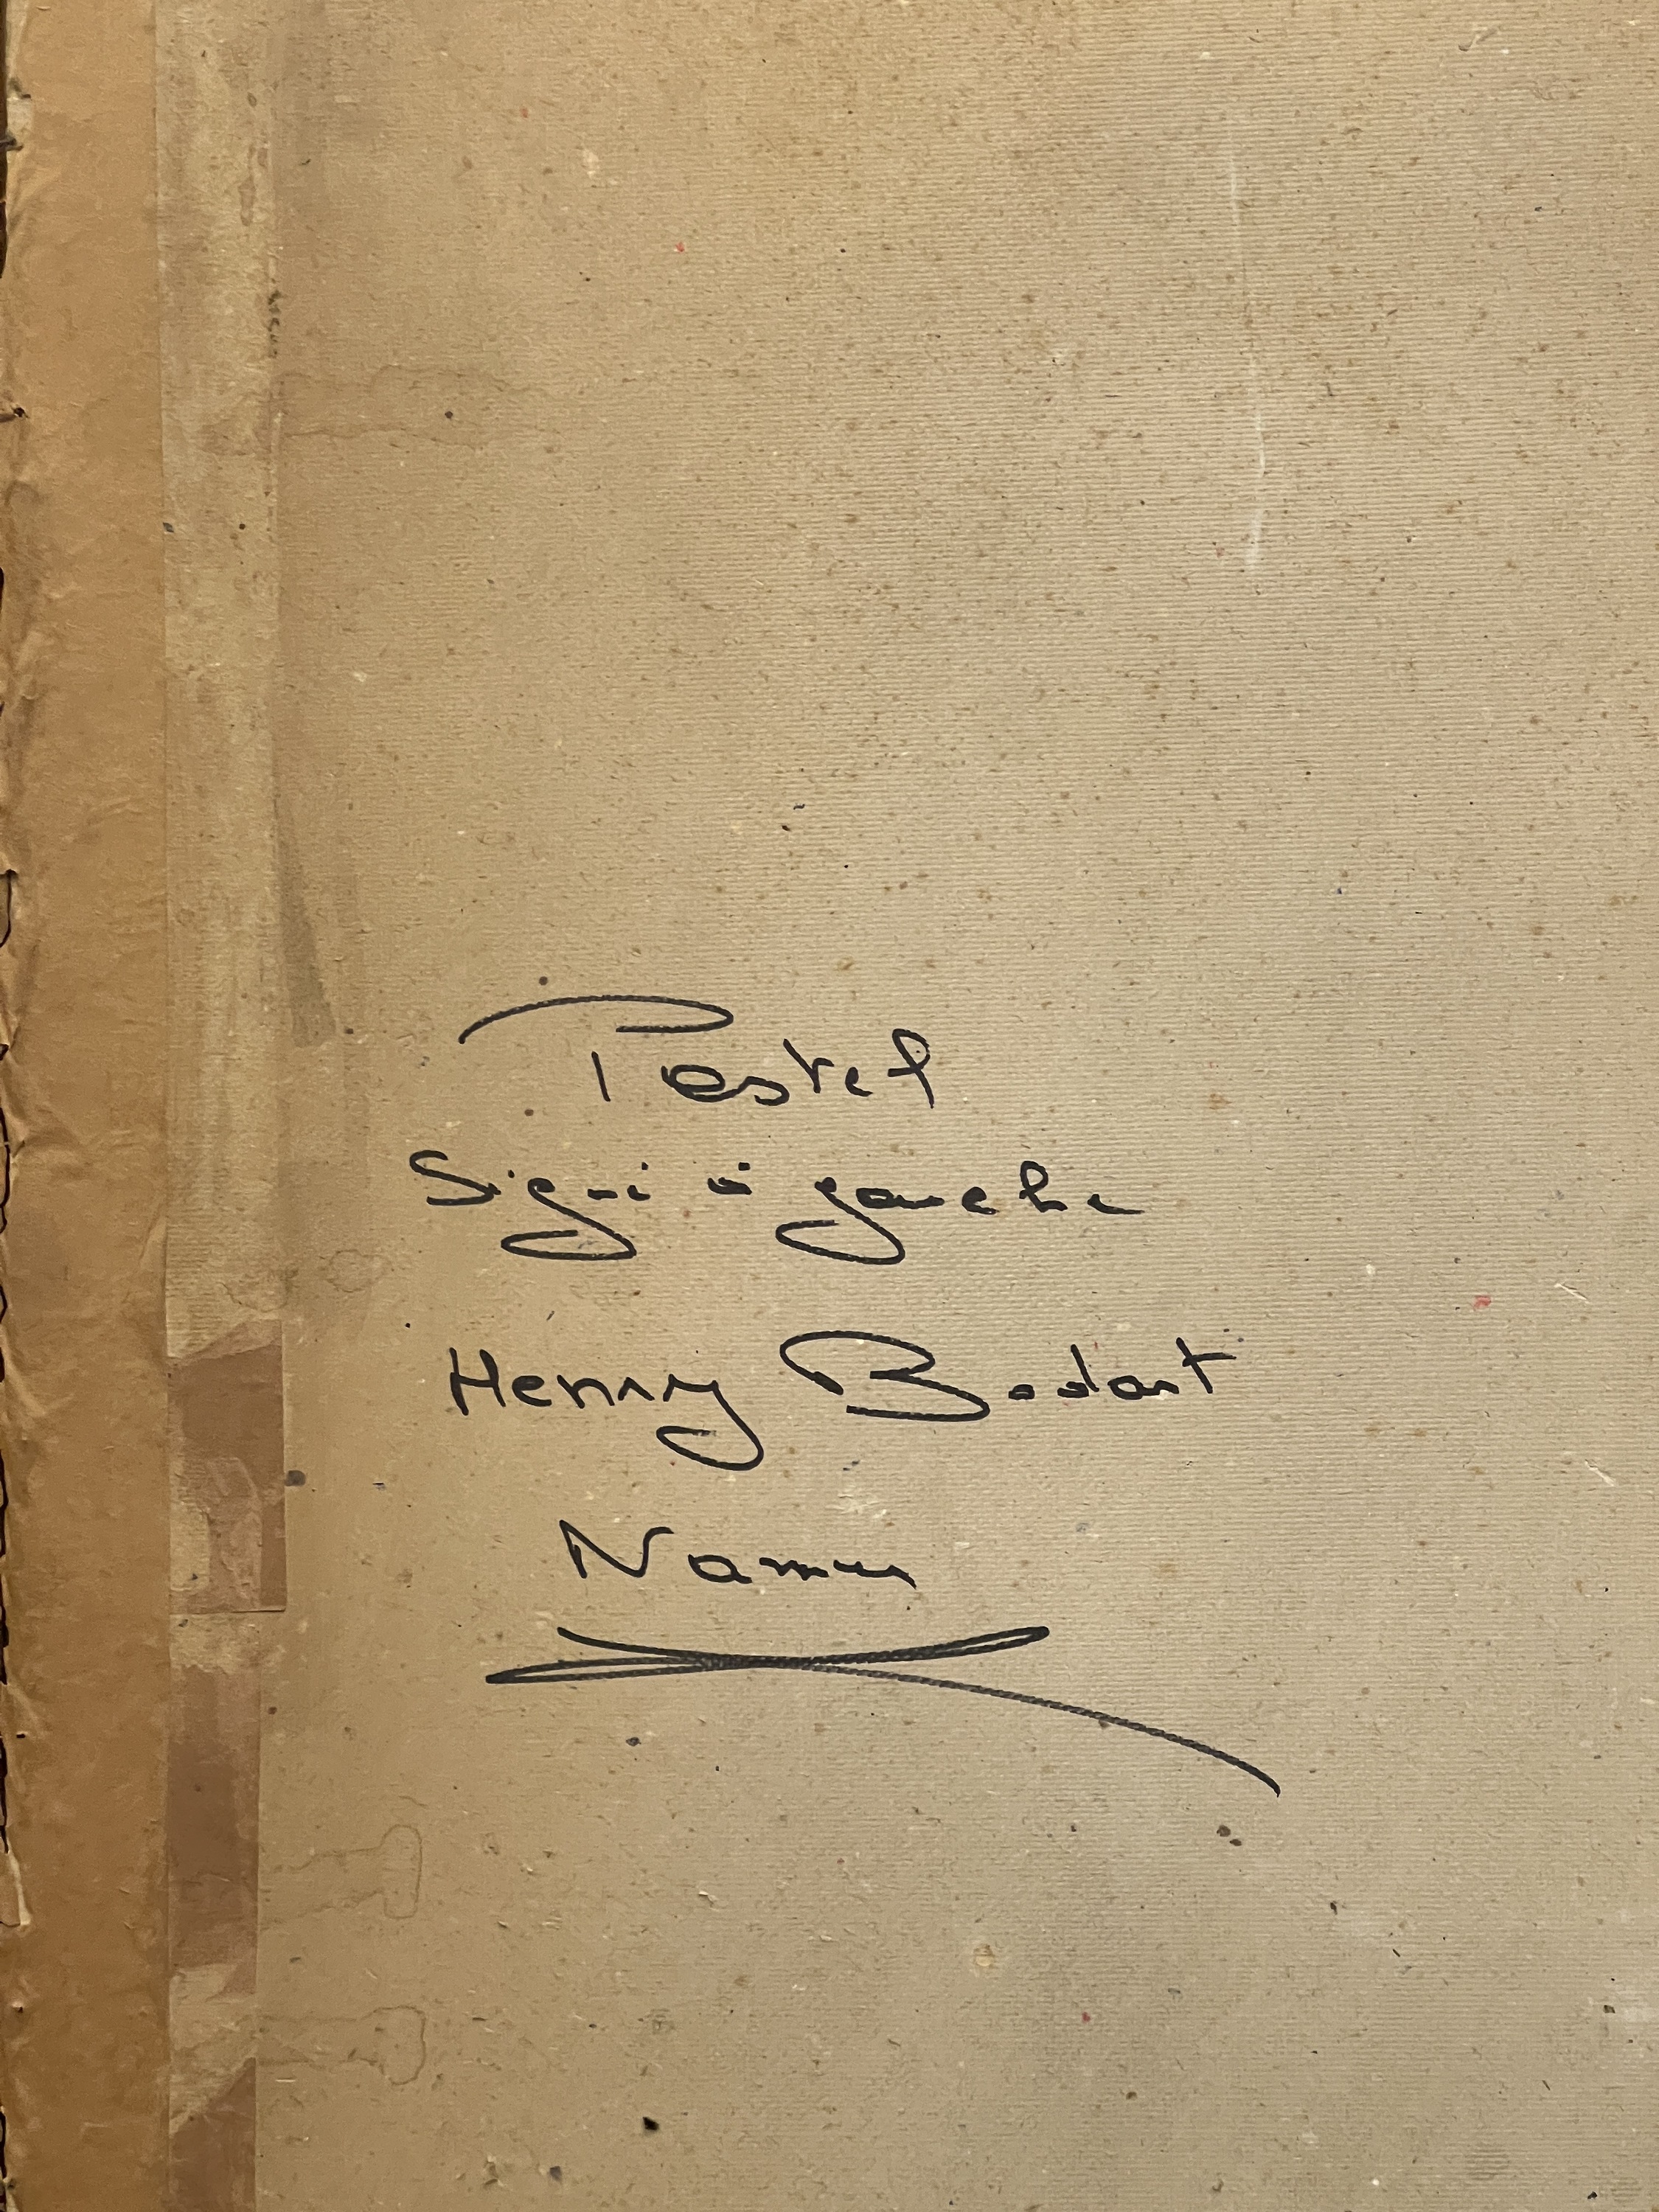 Pastel
Signé à gauche
Henry Bodart
Namur